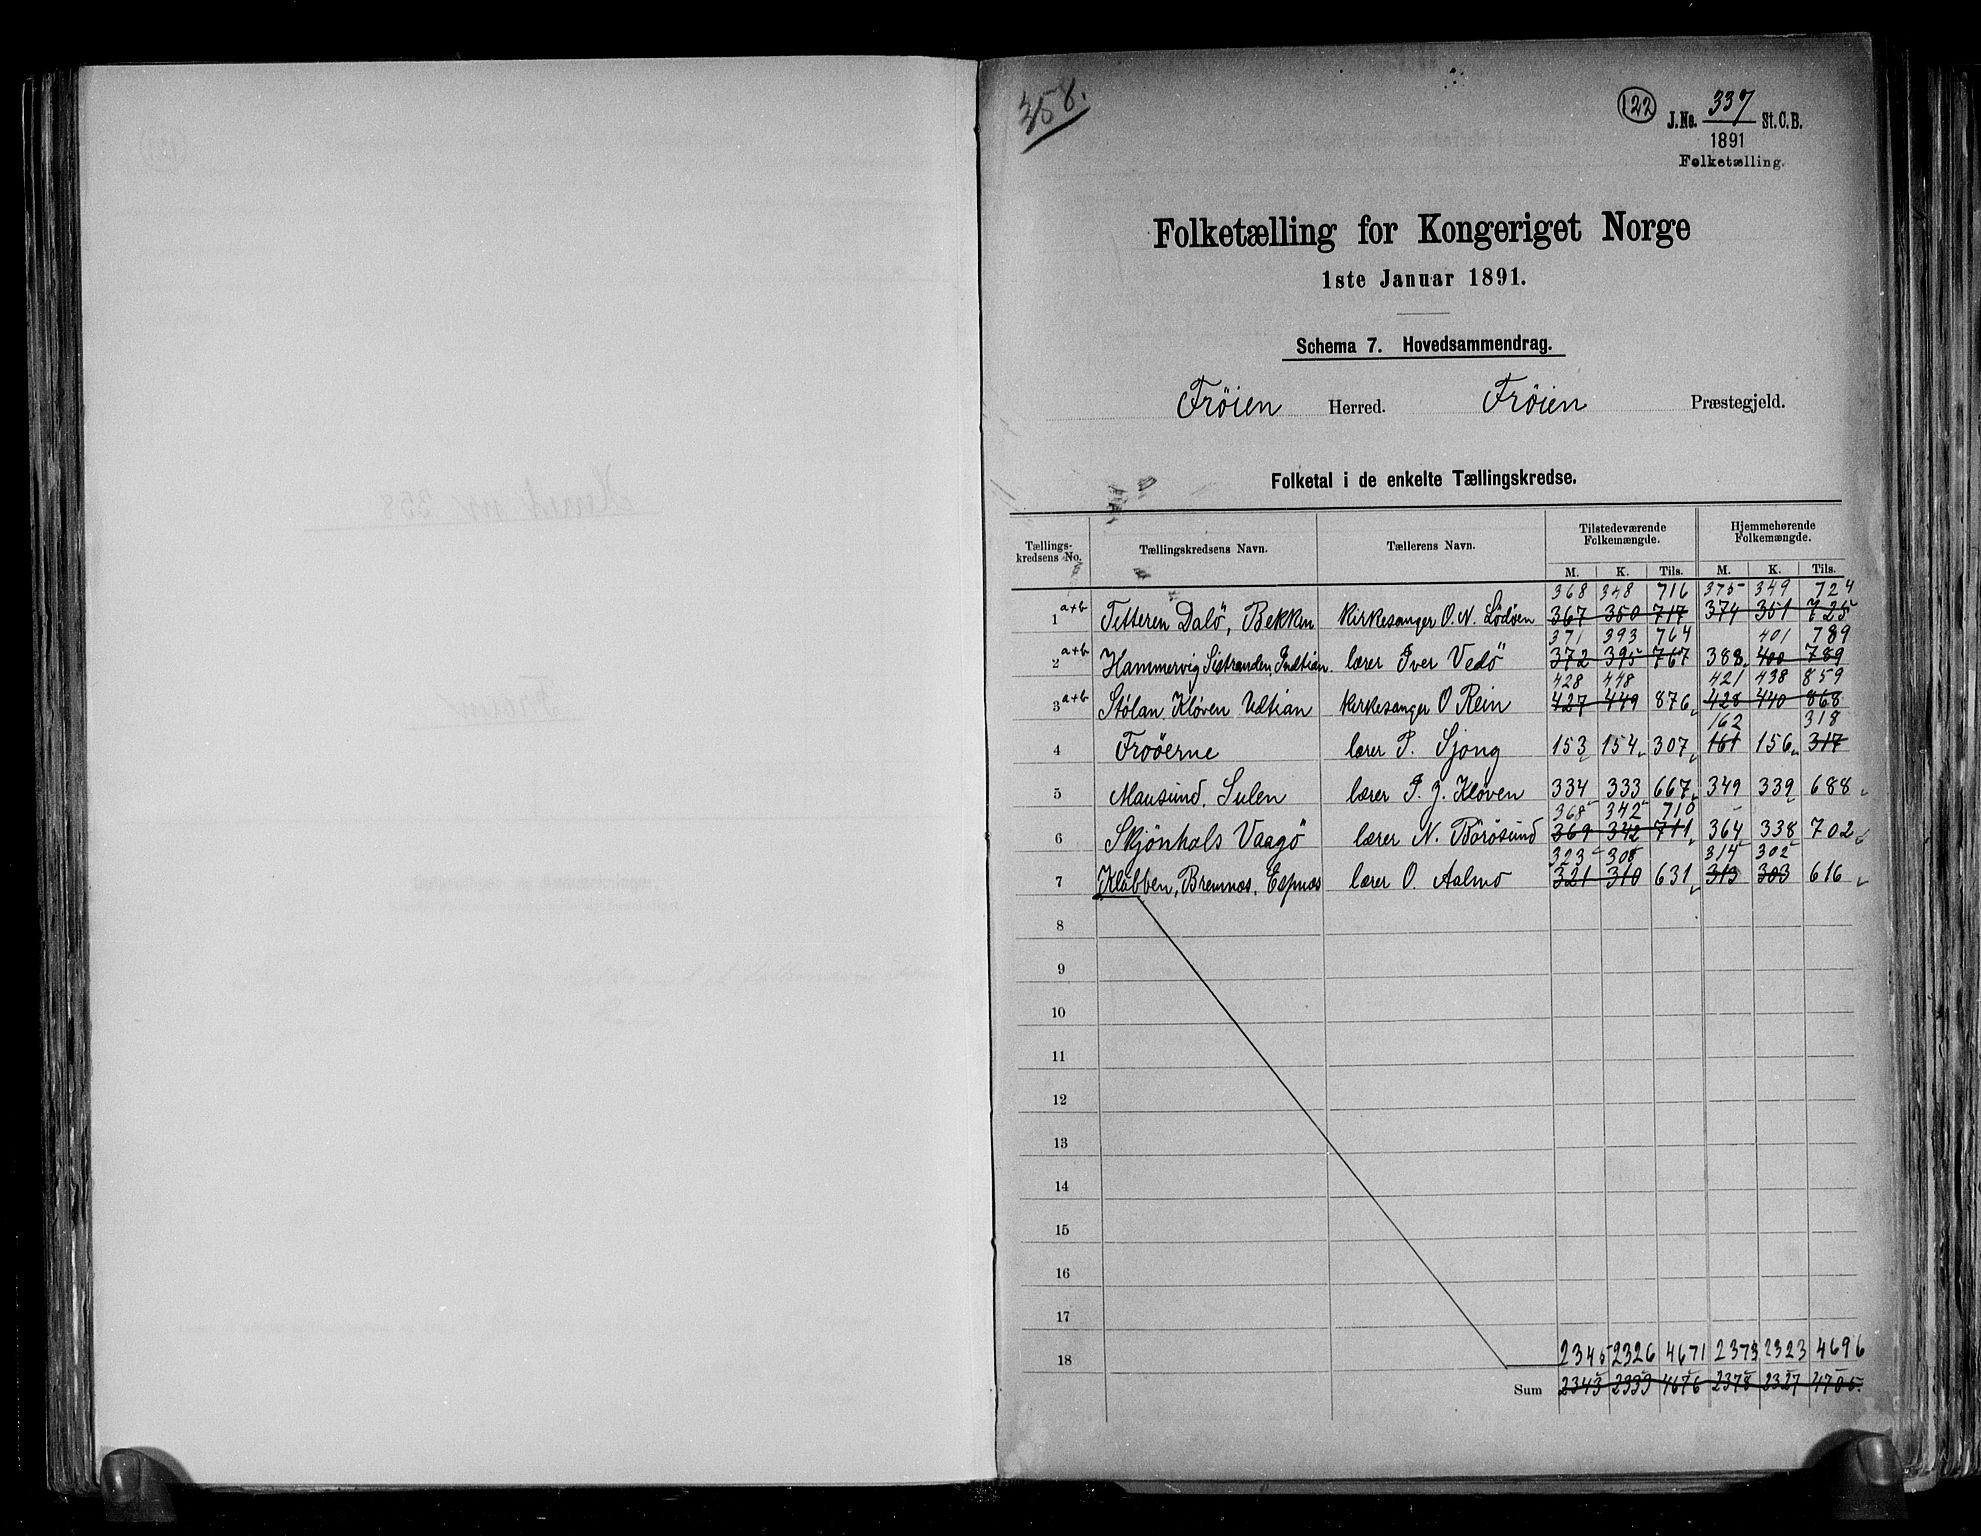 358.
122
J. No. 337 St. C. B.
1891
Folketælling.
Folketælling for Kongeriget Norge
1ste Januar 1891.
Schema 7. Hovedsammendrag.
Frøien Herred. Frøien Præstegjeld.
Folketal i de enkelte Tællingskredse.
Tællings-
kredsens No. Tællingskredsens Navn. Tællerens Navn. Tilstedeværende Folkemængde. Hjemmehørende Folkemængde.
M. K. Tils. M. K. Tils.
368 348 716 375 349 724
1 a+b Titteren Dalö, Bekken kirkesanger O. N. Lødøen 367 350 717 374 351 725
371 393 764 401 789
2 a+b Hammervig Sistranden, Indtian. lærer Iver Vedö 372 395 767 388 400 789
428 448 421 438 859
3 a+b Stølan Kløven Udtian kirkesanger O Rein 427 449 876 428 440 868
162 318
4 Froöerne lærer P. Sjong 153 154 307 161 156 317
5 Mausund, Sulen lærer P. J. Kløven 334 333 667 349 339 688
368 342 710
6 Skjönhals Vaagö lærer N. Börösund 369 342 711 364 338 702
323 308 314 302
7 Klubben, Bremnæs, Espnæs lærer O. Aalmo 321 310 631 313 303 616
8
9
10
11
12
13
14
15
16
17
18 2345 2326 4671 2373 2323 4696
Sum 2343 2333 4676 2378 2327 4705.